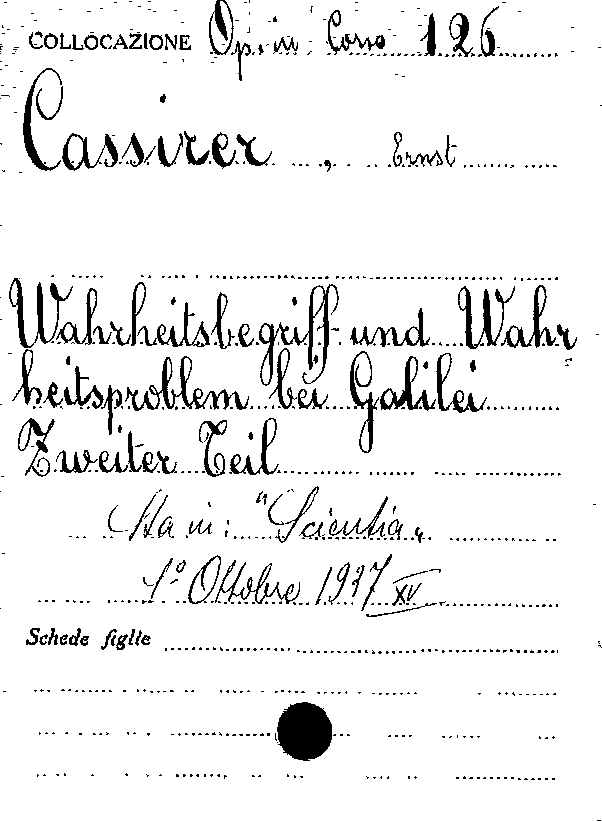 COLLOCAZIONE Op. in Corso 126
Cassirer, Ernst
Wahrheitsbegriff und Wahr
heitsproblem bei Galilei
Zweiter Teil
Sta in: "Scientia„
1º Ottobre 1937 XV
Schede figlie